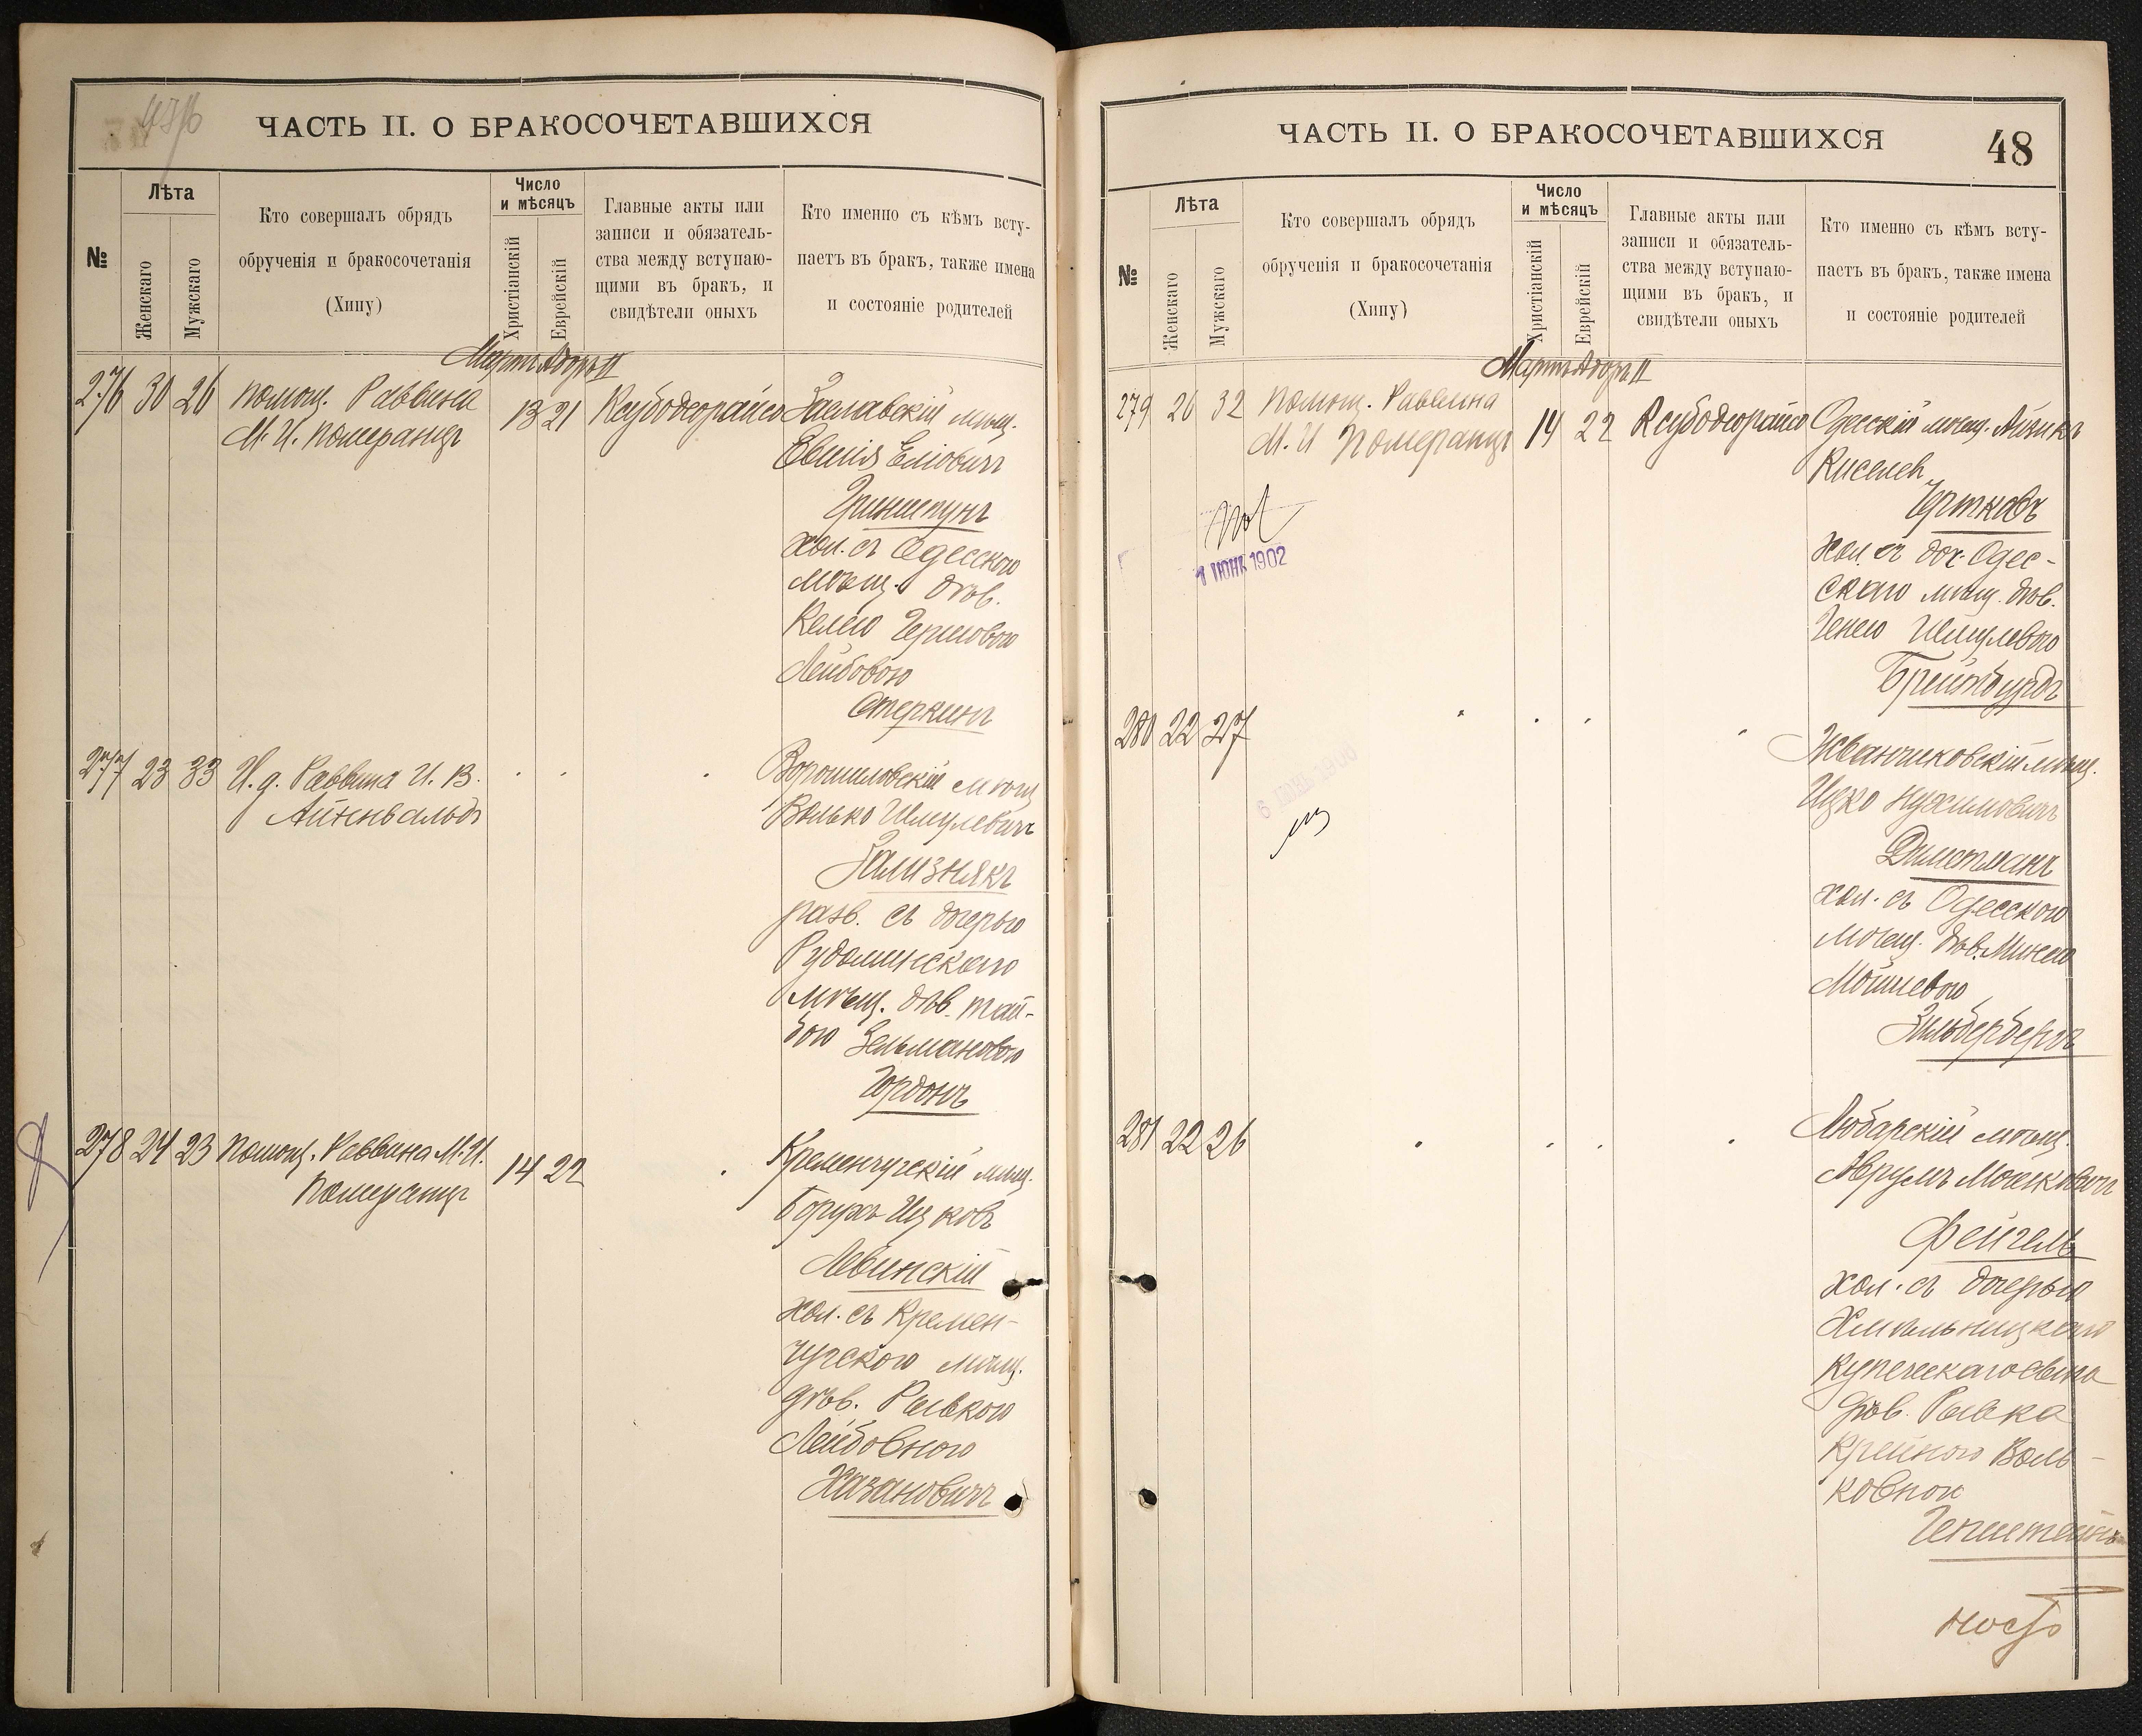 ЧАСТЬ II. О БРАКОСОЧЕТАВШИХСЯ
№
Лѣта
Женскаго
Мужскаго
Кто совершалъ обрядъ
обрученія и бракосочетанія
(Хипу)
Число
и мѣсяцъ
Христіанскій
Еврейскій
Главные акты или
записи и обязатель-
ства между вступаю-
щими въ бракъ, и
свидѣтели оныхъ
Кто именно съ кѣмъ всту-
паетъ въ бракъ, также имена
и состояніе родителей
Мартъ Адоръ II
276 30 26
помощ. Раввина
М. И. Померанцъ
13 21
Ксубодеорайсо
Заславскій мѣщ.
Евшія Еліовичъ
Гринштунъ
хол. съ Одесскою
мѣщ. дѣв.
Келею Гершовою
Лейбовою
Стеркинъ
277 23 33
И. д. Раввина И. В.
Айхенвальдъ
Ворошиловскій мѣщ
Волько Шмулевичъ
Зализнякъ
разв. съ дочерью
Рудоминскаго
мѣщ. дѣв. Тай-
бою Зельмановою
Гордонъ
278 24 23
помощ. Раввина М. И.
Померанцъ
14 22
Кременчугскій мѣщ.
Борухъ Ицковъ
Левинскій
хол. съ Кремен-
чугскою мѣщ.
дѣв. Ривкою
Лейбовною
Хазановичъ
ЧАСТЬ II. О БРАКОСОЧЕТАВШИХСЯ
48
№
Лѣта
Женскаго
Мужскаго
Кто совершалъ обрядъ
обрученія и бракосочетанія
(Хипу)
Число
и мѣсяцъ
Христіанскій
Еврейскій
Главные акты или
записи и обязатель-
ства между вступаю-
щими въ бракъ, и
свидѣтели оныхъ
Кто именно съ кѣмъ всту-
паетъ въ бракъ, также имена
и состояніе родителей
Мартъ Адоръ II
279 26 32
помощ. Раввина
М. И Померанцъ
14 22
Ксубодеорайсо
Одесскій мѣщ. Айзикъ
Киселев
Чертковъ
хол. съ доч. Одес-
скаго мѣщ. дѣв.
Генею Шмулевою
Брейтбурдъ
1 ИЮНЬ 1902
280 22 27
Жванчиковскій мѣщ.
Ицко Нухимовичъ
Диметманъ
хол. съ Одесскою
мѣщ. дѣв. Минею
Мошневою
Зильбербергъ
281 22 26
Любарскій мѣщ.
Аврумъ Мошковичъ
Фейгель
хол. съ дочерью
Хмѣльницкаго
Купеческаго сына
дѣв. Ривка
Крейною Воль-
ковною
Гепштейнъ